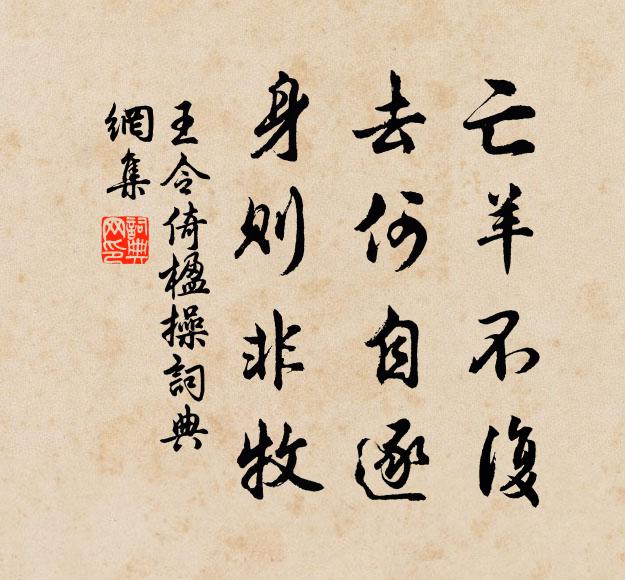 亡羊不復
去何自逐
身則非牧
王令倚楹操詞典
網集
詞典網印